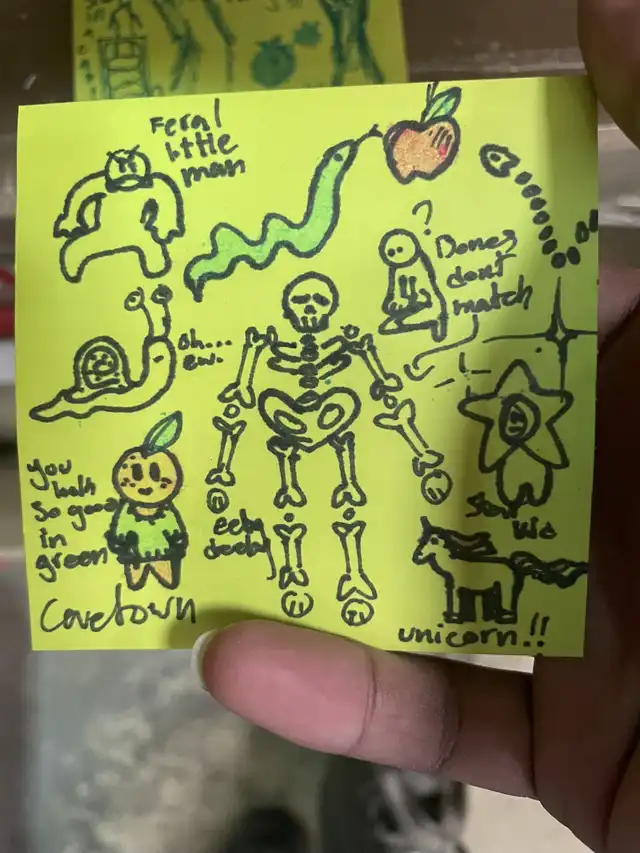 Feral
little
man
?
Bones
don't
match
oh...
ew.
you
look
so good
in
green
Cavetown
unicorn!!